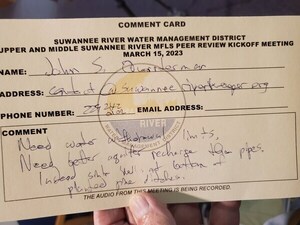 COMMENT CARD
SUWANNEE RIVER WATER MANAGEMENT DISTRICT
UPPER AND MIDDLE SUWANNEE RIVER MFLS PEER REVIEW KICKOFF MEETING
MARCH 15, 2023
NAME: John S. Quarterman
ADDRESS: contact@suwanneeriverkeeper.org
PHONE NUMBER: 229 242 EMAIL ADDRESS:
COMMENT
Need water withdrawal limits.
Need better aquifer recharge than pipes.
Instead
planted pine
RIVER
THE AUDIO FROM THIS MEETING IS BEING RECORDED.